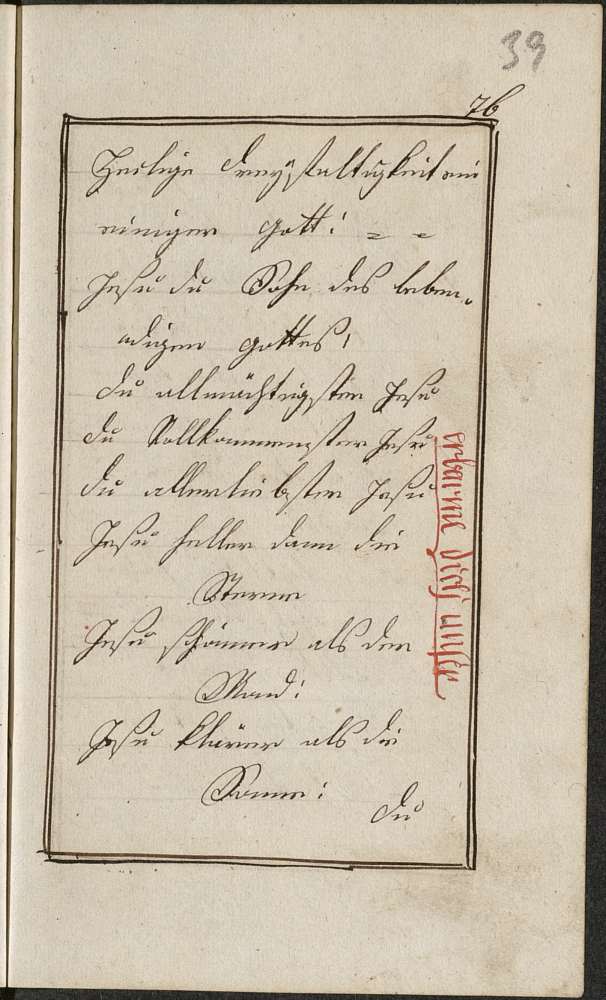 39
76
Heilige Dreyfaltigkeit ein
einiger Gott: = =
Jesu du Sohn des leben„
ndigen gottes,
du allmächtigster Jesu
du Vollkommenster Jesu
du allerliebster Jesu
Jesu heller dann die
Sterne
Jesu schönner als der
Mond:
Jesu klärer als die
Sonne:
du
erbarme dich unser